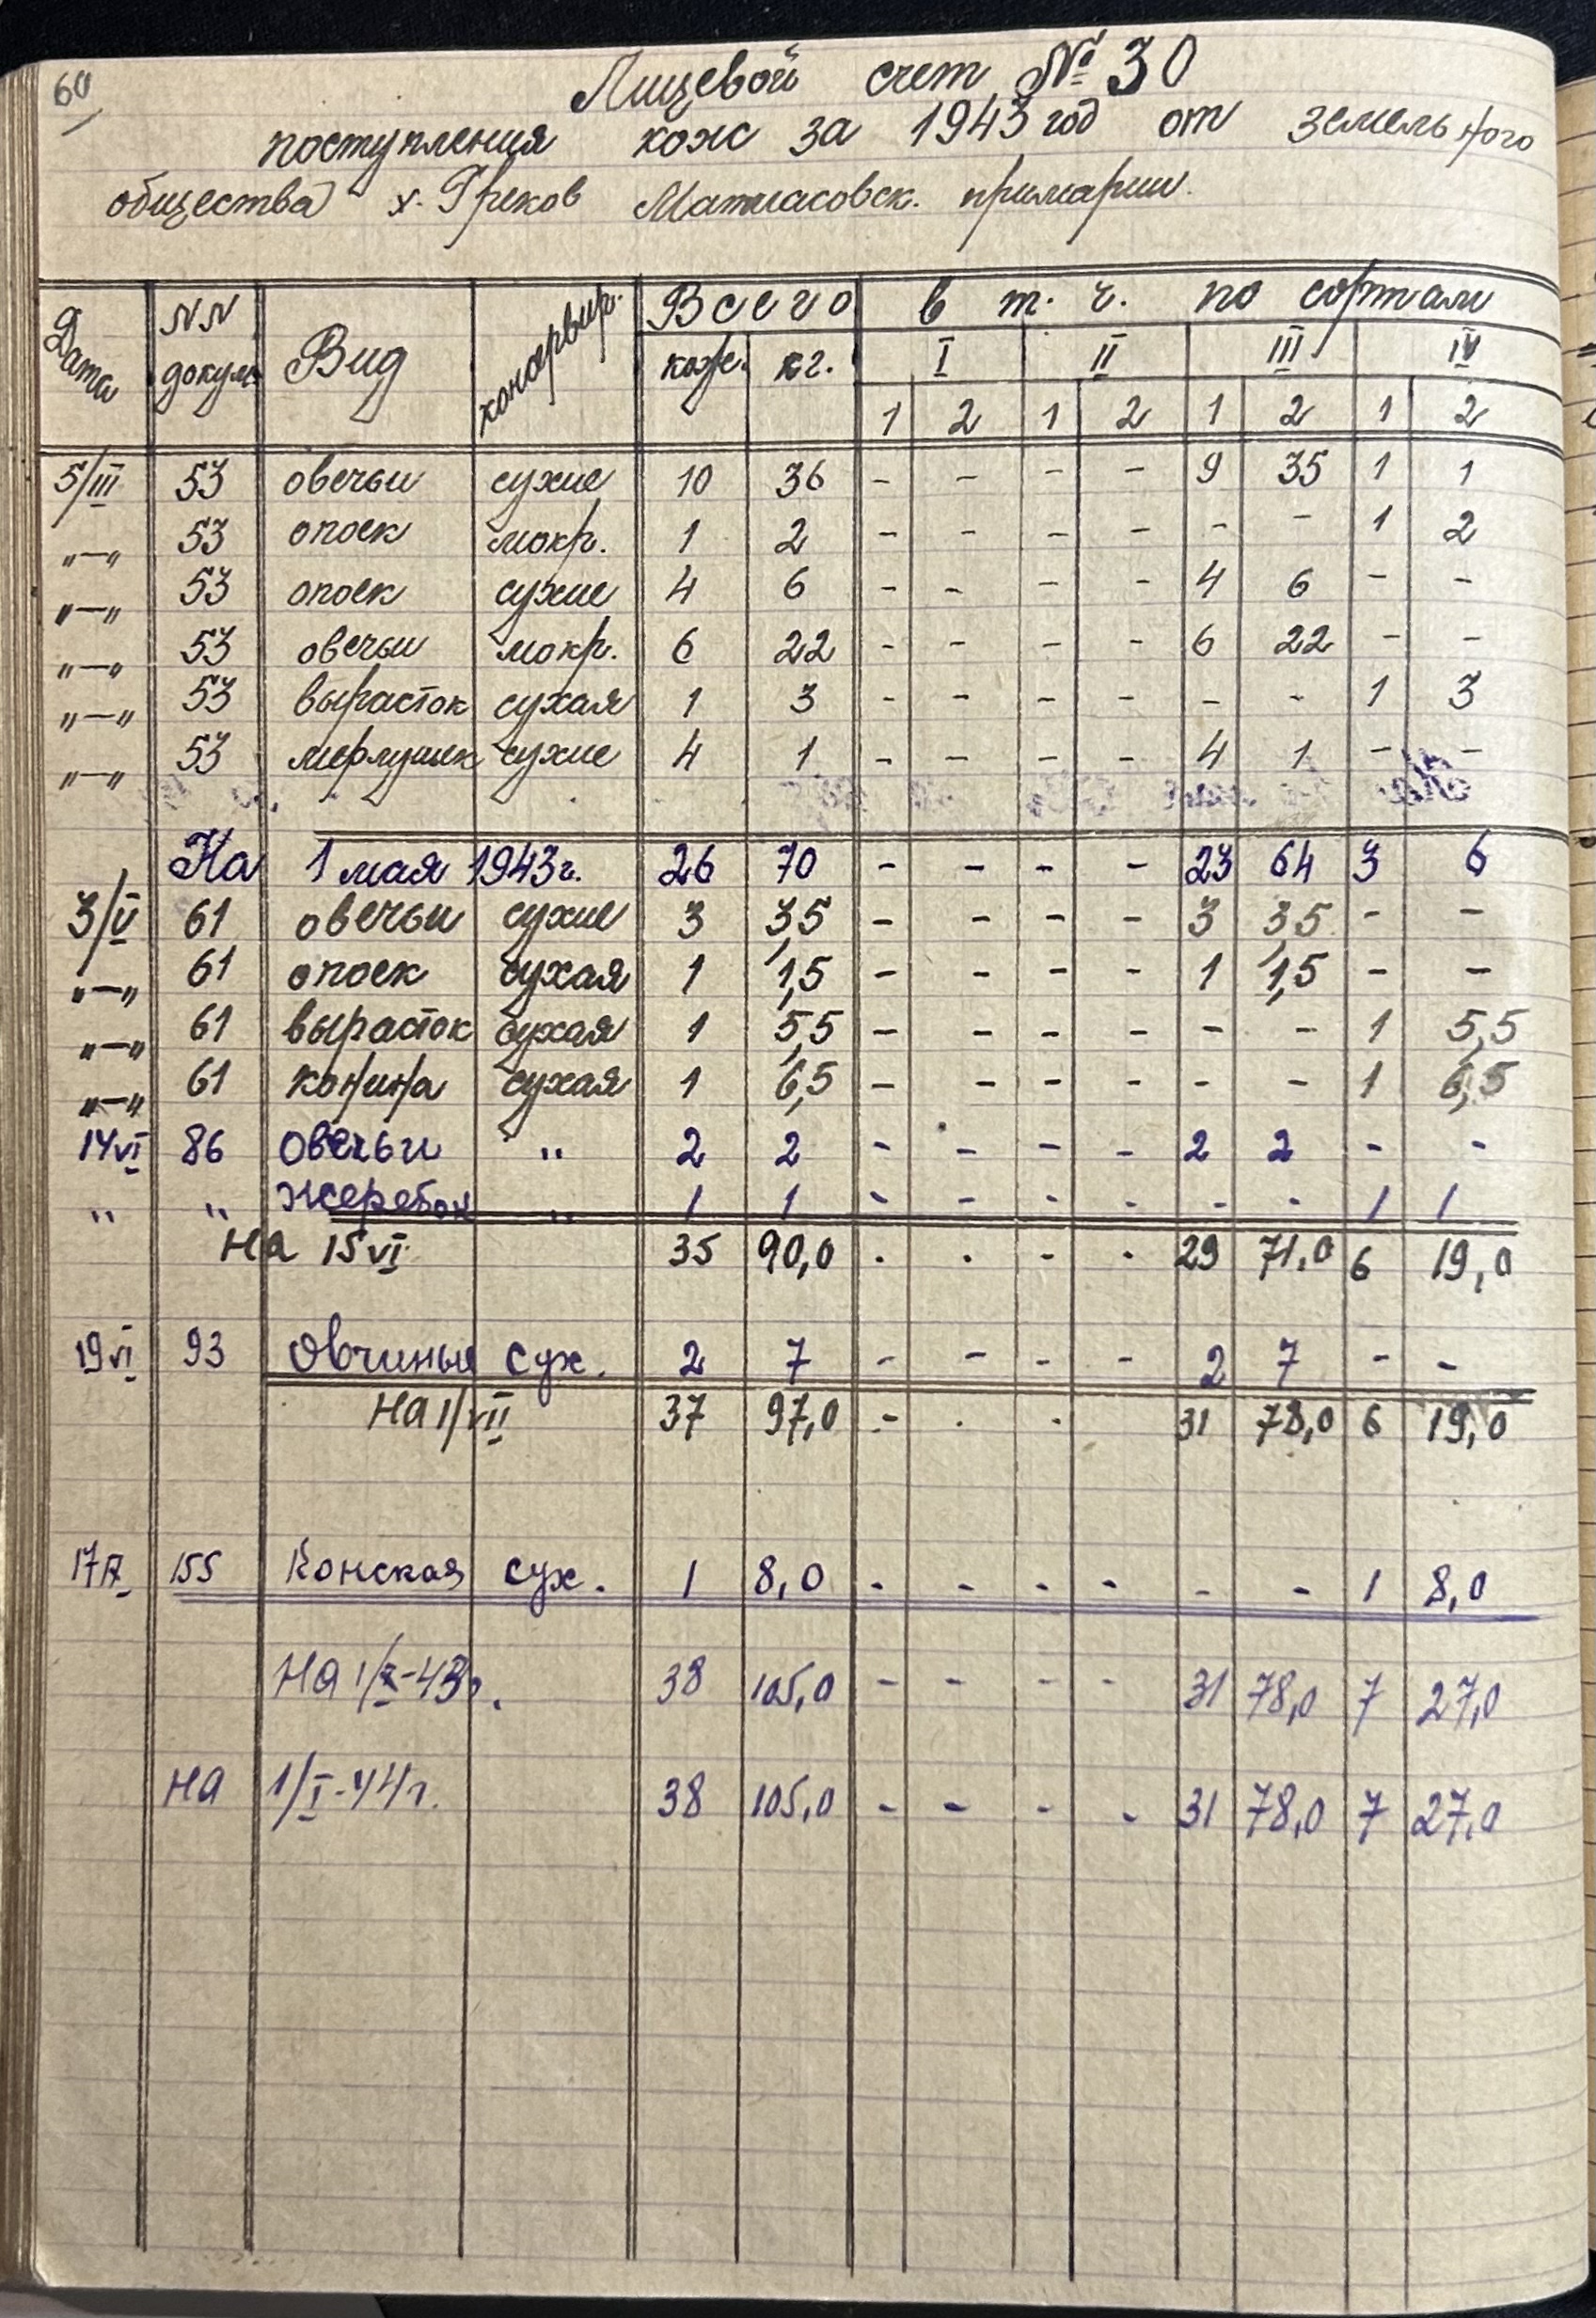 60
Лицевой счет № 30
поступления кож за 1943 год от земельного
общества х. Греков Матиасовск. примарии.
Дата NN докум. Вид консервир. Всего в т. ч. по сортам
кож. кг. I II III IV
1 2 1 2 1 2 1 2
5/III 53 овечьи сухие 10 36 - - - - 9 35 1 1
"—" 53 опоек мокр. 1 2 - - - - - - 1 2
"—" 53 опоек сухие 4 6 - - - - 4 6 - -
"—" 53 овечьи мокр. 6 22 - - - - 6 22 - -
"—" 53 вырасток сухая 1 3 - - - - - - 1 3
"—" 53 мерлушек сухие 4 1 - - - - 4 1 - -
На 1 мая 1943г. 26 70 - - - - 23 64 3 6
3/V 61 овечьи сухие 3 3,5 - - - - 3 3,5 - -
"—" 61 опоек сухая 1 1,5 - - - - 1 1,5 - -
"—" 61 вырасток сухая 1 5,5 - - - - - - 1 5,5
"—" 61 конина сухая 1 6,5 - - - - - - 1 6,5
14 VI 86 овечьи " 2 2 - - - - 2 2 - -
" " жеребок " 1 1 - - - - - - 1 1
на 15 VI. 35 90,0 . . - . 29 71,0 6 19,0
19 VI 93 Овчиные сух. 2 7 - - - - 2 7 - -
на 1/VII 37 97,0 - . . 31 78,0 6 19,0
17 IX 155 Конская сух. 1 8,0 - - - - - - 1 8,0
на 1/X-43г. 38 105,0 - - - - 31 78,0 7 27,0
на 1/I-44г. 38 105,0 - - - - 31 78,0 7 27,0